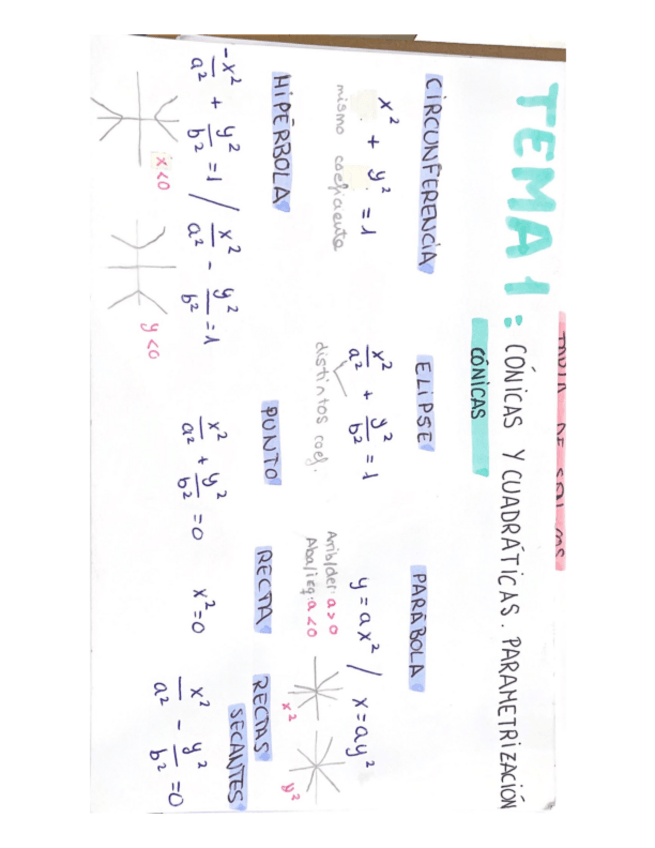 TEMA 1: CÓNICAS Y CUADRÁTICAS. PARAMETRIZACIÓN
CÓNICAS
CIRCUNFERENCIA
x² + y² = 1
mismo coeficiente
ELIPSE
x²/a² + y²/b² = 1
distintos coef.
PARÁBOLA
y = ax² / x = ay²
Arrib/der: a > 0
Aba/izq: a < 0
x²
y²
HIPÉRBOLA
-x²/a² + y²/b² = 1 / x²/a² - y²/b² = 1
x<0
y<0
PUNTO
x²/a² + y²/b² = 0
RECTA
x² = 0
RECTAS
SECANTES
x²/a² - y²/b² = 0